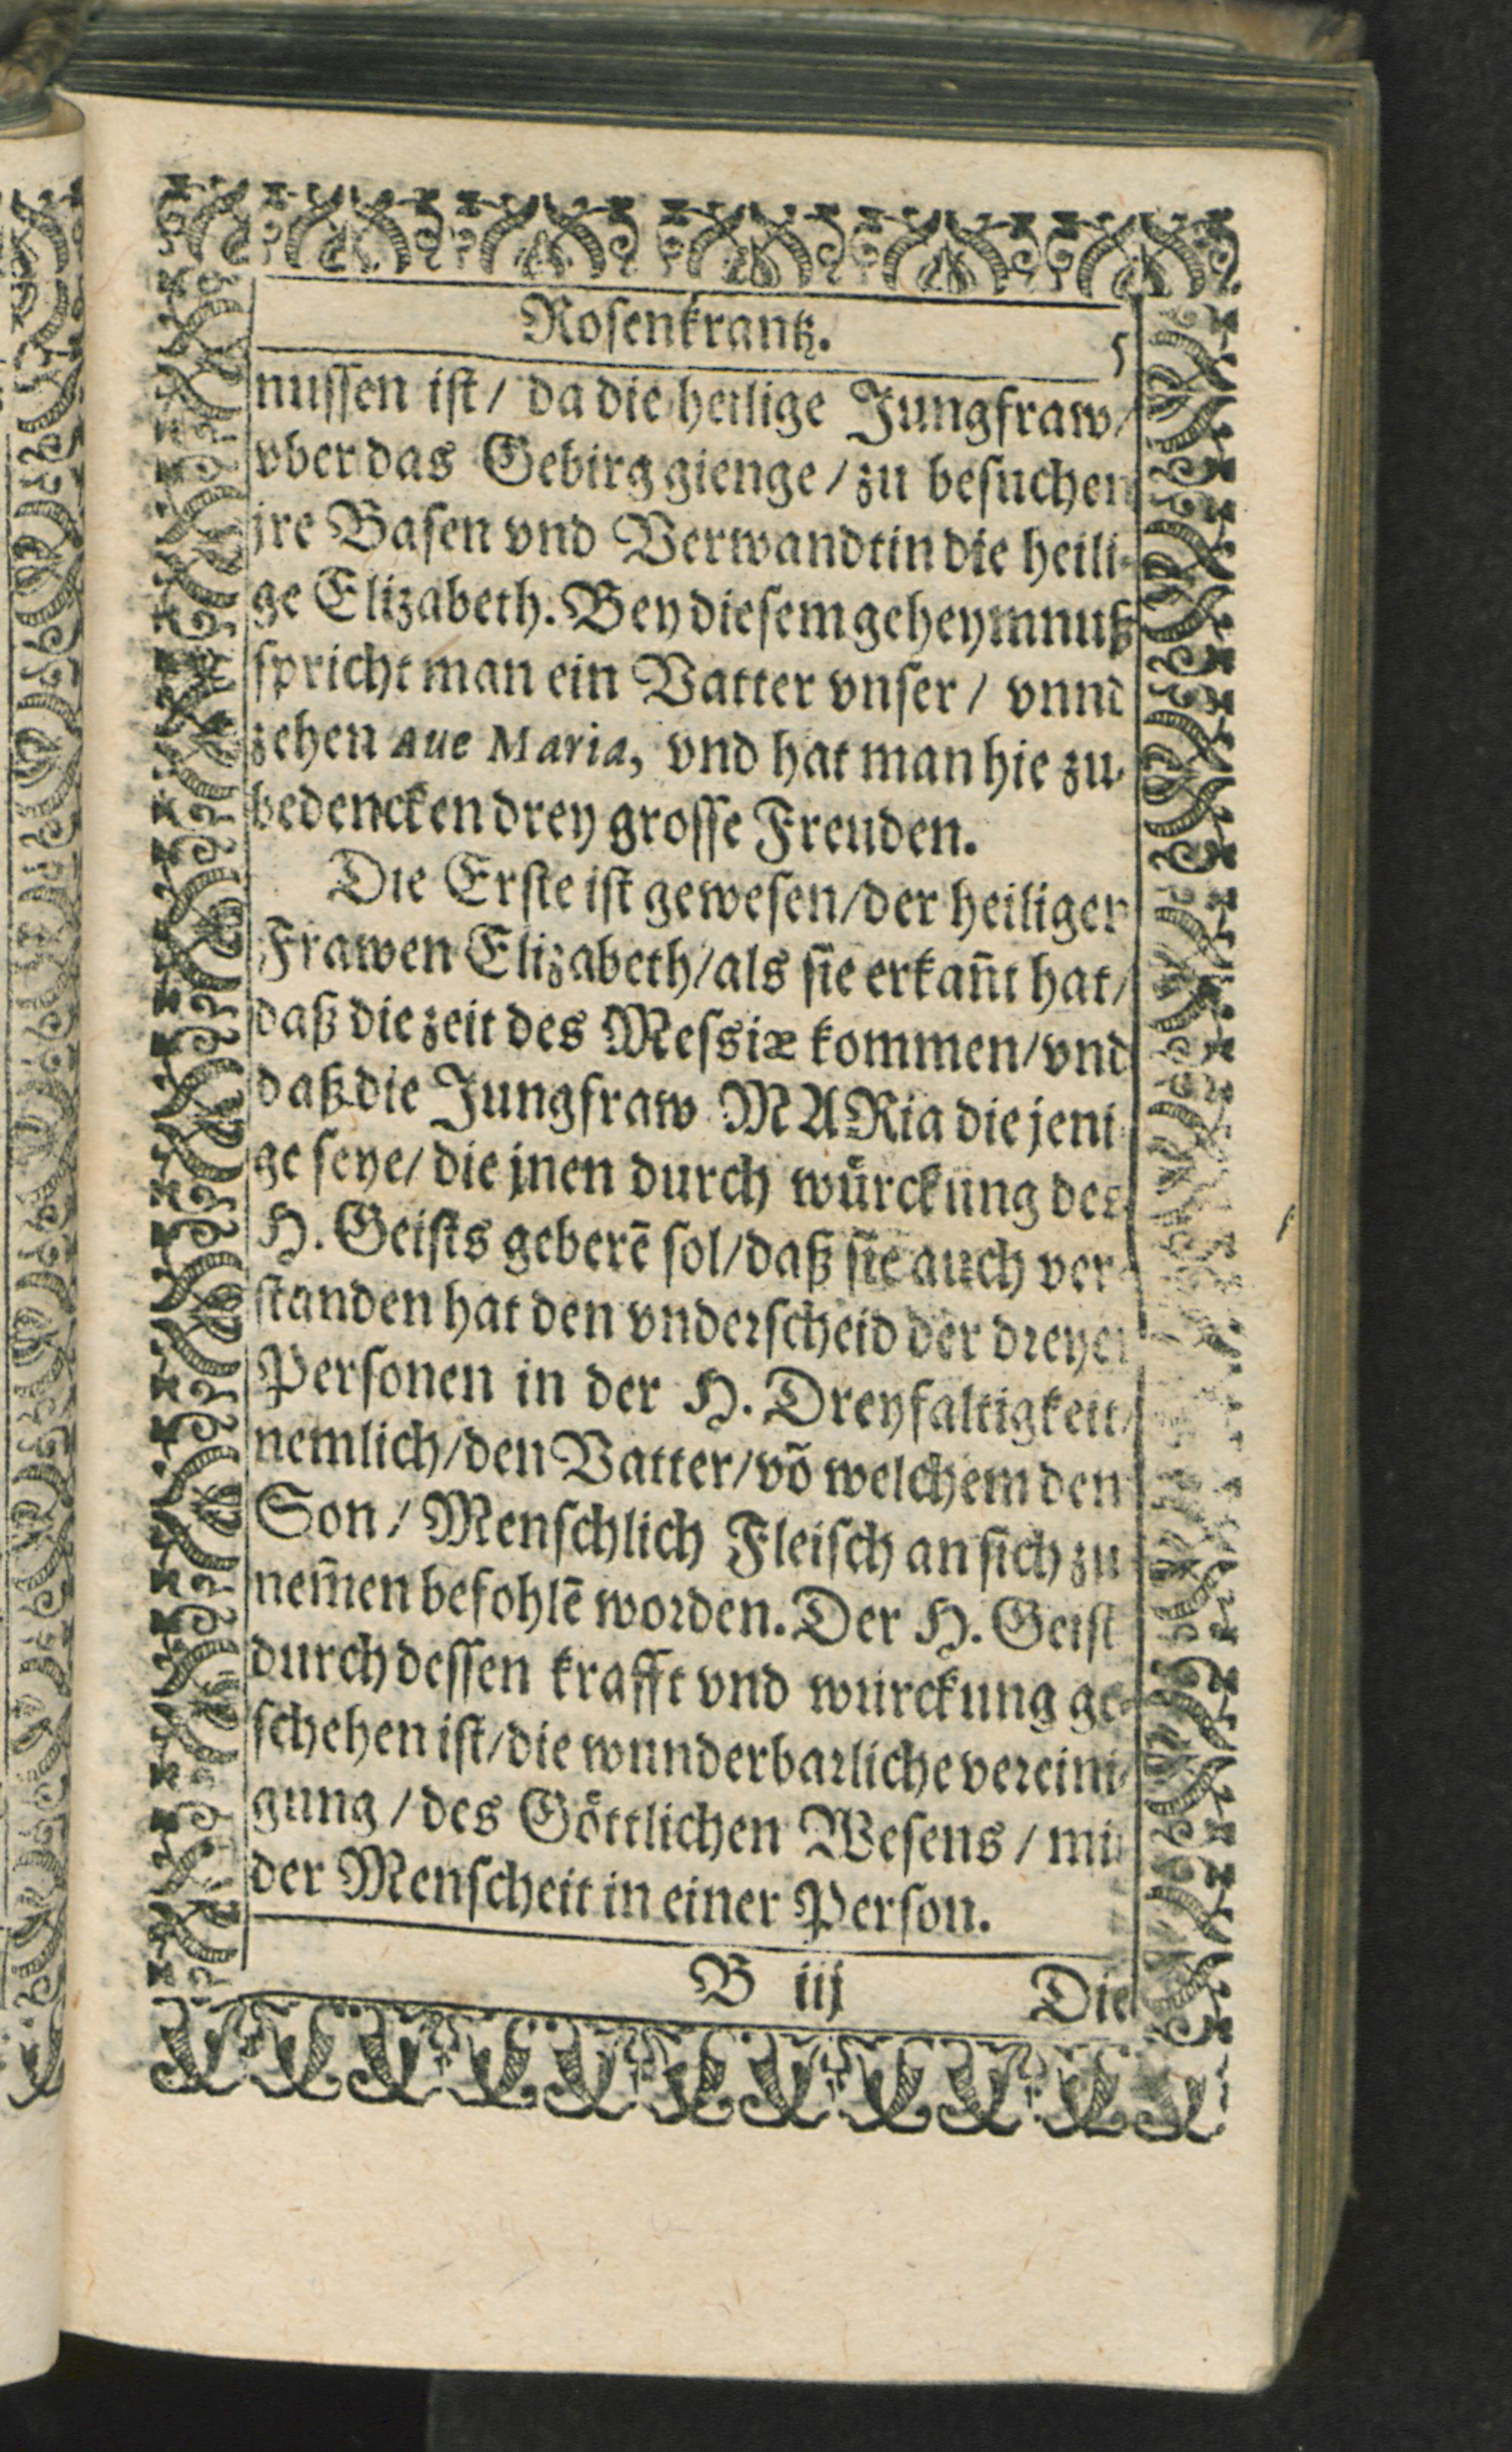 Rosenkrantz. 5
nussen ist / da die heilige Jungfraw /
vber das Gebirg gienge / zu besuchen
jre Basen vnd Verwandtin die heili-
ge Elizabeth. Bey diesem geheymnuß
spricht man ein Vatter vnser / vnnd
zehen Aue Maria, vnd hat man hie zu-
bedencken drey grosse Freuden.
Die Erste ist gewesen / der heiligen
Frawen Elizabeth / als sie erkan̄t hat /
daß die zeit des Messiæ kommen / vnd
daß die Jungfraw MARia die jeni-
ge seye / die jnen durch würckung des
H. Geists geberē sol / daß sie auch ver-
standen hat den vnderscheid der dreyer
Personen in der H. Dreyfaltigkeit /
nemlich / den Vatter / võ welchem den
Son / Menschlich Fleisch an sich zu
nem̄en befohlē worden. Der H. Geist
durch dessen krafft vnd würckung ge-
schehen ist / die wunderbarliche vereini-
gung / des Göttlichen Wesens / mit
der Menscheit in einer Person.
B iij Die